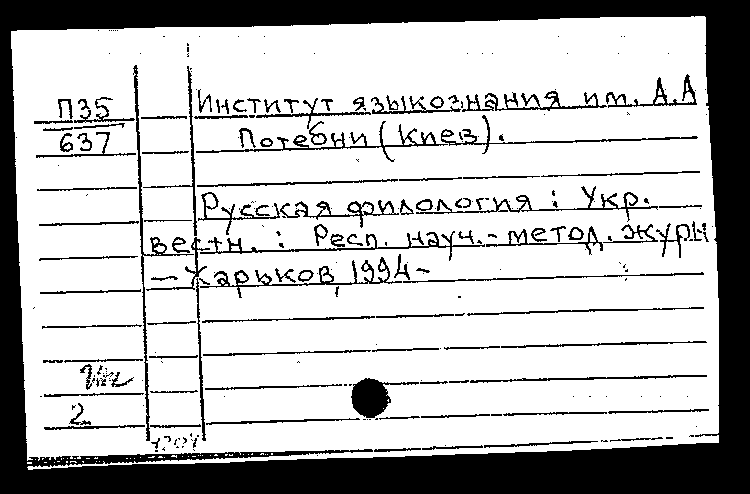 П35 Институт языкознания им. А.А
637 Потебни (Киев).
Русская филология : Укр.
вестн. : Респ. науч.-метод. журн.
— Харьков, 1994-
2